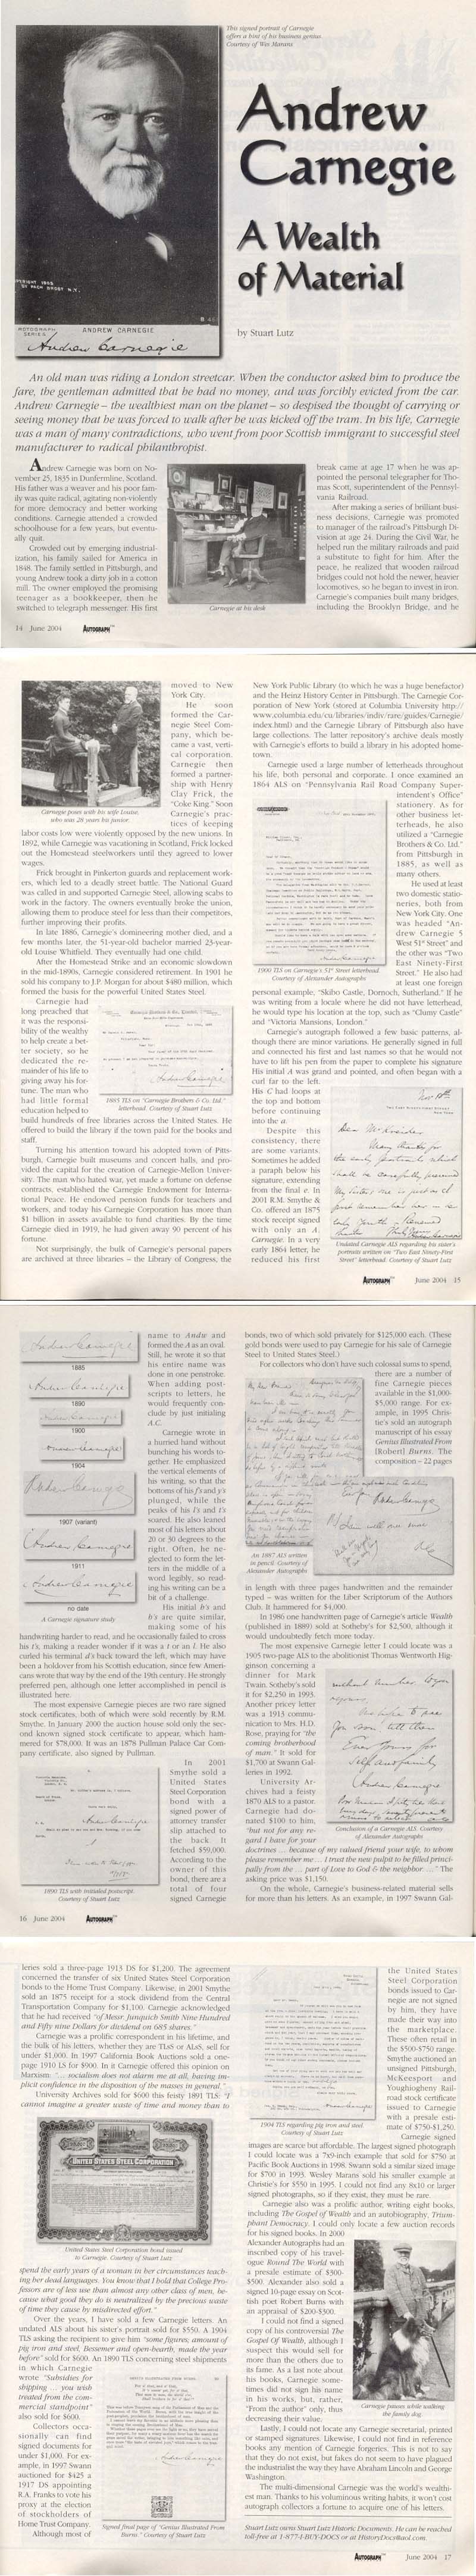 This signed portrait of Carnegie
offers a hint of his business genius
Courtesy of Wes Marans
Andrew
Carnegie
A Wealth
of Material
by Stuart Lutz
ROTOGRAPH
SERIES
ANDREW CARNEGIE
Andrew Carnegie
An old man was riding a London streetcar. When the conductor asked him to produce the
fare, the gentleman admitted that he had no money, and was forcibly evicted from the car.
Andrew Carnegie – the wealthiest man on the planet – so despised the thought of carrying or
seeing money that he was forced to walk after he was kicked off the tram. In his life, Carnegie
was a man of many contradictions, who went from poor Scottish immigrant to successful steel
manufacturer to radical philanthropist.
Andrew Carnegie was born on No-
vember 25, 1835 in Dunfermline, Scotland.
His father was a weaver and his poor fam-
ily was quite radical, agitating non-violently
for more democracy and better working
conditions. Carnegie attended a crowded
schoolhouse for a few years, but eventu-
ally quit.
Crowded out by emerging industrial-
ization, his family sailed for America in
1848. The family settled in Pittsburgh, and
young Andrew took a dirty job in a cotton
mill. The owner employed the promising
teenager as a bookkeeper, then he
switched to telegraph messenger. His first
Carnegie at his desk
break came at age 17 when he was ap-
pointed the personal telegrapher for Tho-
mas Scott, superintendent of the Pennsyl-
vania Railroad.
After making a series of brilliant busi-
ness decisions, Carnegie was promoted
to manager of the railroad's Pittsburgh Di-
vision at age 24. During the Civil War, he
helped run the military railroads and paid
a substitute to fight for him. After the
peace, he realized that wooden railroad
bridges could not hold the newer, heavier
locomotives, so he began to invest in iron.
Carnegie's companies built many bridges,
including the Brooklyn Bridge, and he
14 June 2004 AUTOGRAPH
moved to New
York City.
He soon
formed the Car-
negie Steel Com-
pany, which be-
came a vast, verti-
cal corporation.
Carnegie then
formed a partner-
ship with Henry
Clay Frick, the
"Coke King." Soon
Carnegie's prac-
tices of keeping
Carnegie poses with his wife Louise,
who was 28 years his junior.
labor costs low were violently opposed by the new unions. In
1892, while Carnegie was vacationing in Scotland, Frick locked
out the Homestead steelworkers until they agreed to lower
wages.
Frick hired armed Pinkerton guards and replacement work-
ers, which led to a deadly street battle. The National Guard
was called in and supported Carnegie Steel, allowing scabs to
work in the factory. The company eventually broke the union,
allowing them to produce steel for less than their competitors,
further improving their profits.
In late 1886, Carnegie's domineering mother died, and a
few months later the 51-year-old bachelor married 23-year-
old Louise Whitfield. They eventually had one child.
After the Homestead Strike and an economic slowdown
in the mid-1890s, Carnegie contemplated retiring. In 1901 he
sold his company to J.P. Morgan for about $480 million, which
formed the basis for the powerful United States Steel.
Carnegie had
long preached that
it was the responsi-
bility of the wealthy
to help create a bet-
ter society, so he
dedicated the re-
mainder of his life to
giving away his for-
tune. The man who
had little formal
education helped to
1885 TLS on "Carnegie Brothers & Co. Ltd."
letterhead. Courtesy of Stuart Lutz
build hundreds of free libraries across the United States. He
offered to build the library if the town paid for the books and
staff.
Turning his attention toward his adopted town of Pitts-
burgh, Carnegie built museums and concert halls, and pro-
vided the capital for the creation of Carnegie-Mellon Univer-
sity. The man who hated war, yet made a fortune on defense
contracts, established the Carnegie Endowment for Interna-
tional Peace. He endowed pension funds for teachers and
workers, and today his Carnegie Corporation has more than
$1 billion in assets available to fund charities. By the time
Carnegie died in 1919, he had given away 90 percent of his
fortune.
Not surprisingly, the bulk of Carnegie's personal papers
are archived at three libraries – the Library of Congress, the
New York Public Library (to which he was a huge benefactor)
and the Heinz History Center in Pittsburgh. The Carnegie Cor-
poration of New York (stored at Columbia University http://
www.columbia.edu/cu/libraries/indiv/rare/guides/Carnegie/
index.html) and the Carnegie Library of Pittsburgh also have
large collections. The latter repository's archive deals mostly
with Carnegie's efforts to build a library in his adopted home-
town.
Carnegie used a large number of letterheads throughout
his life, both personal and corporate. I once examined an
1864 ALS on "Pennsylvania Rail Road Company Super-
intendent's Office"
stationery. As for
other business let-
terheads, he also
utilized a "Carnegie
Brothers & Co. Ltd."
from Pittsburgh in
1885, as well as
many others.
He used at least
two domestic statio-
neries, both from
New York City. One
was headed "An-
drew Carnegie 5
West 51st Street" and
the other was "Two
East Ninety-First
Street." He also had
at least one foreign
1900 TLS on Carnegie's 51st Street letterhead.
Courtesy of Alexander Autographs
personal example, "Skibo Castle, Dornoch, Sutherland." If he
was writing from a locale where he did not have letterhead,
he would type his location at the top, such as "Cluny Castle"
and "Victoria Mansions, London."
Carnegie's autograph followed a few basic patterns, al-
though there are minor variations. He generally signed in full
and connected his first and last names so that he would not
have to lift his pen from the paper to complete his signature.
His initial A was grand and pointed, and often began with a
curl far to the left.
His C had loops at
the top and bottom
before continuing
into the a.
Despite this
consistency, there
are some variants.
Sometimes he added
a paraph below his
signature, extending
from the final e. In
2001 R.M. Smythe &
Co. offered an 1875
stock receipt signed
with only an A.
Carnegie. In a very
early 1864 letter, he
reduced his first
Undated Carnegie ALS regarding his sister's
portraits written on "Two East Ninety-First
Street" letterhead. Courtesy of Stuart Lutz
AUTOGRAPH June 2004 15
1885
1890
1900
1904
1907 (variant)
1911
no date
A Carnegie signature study
name to Andw and
formed the A as an oval.
Still, he wrote it so that
his entire name was
done in one penstroke.
When adding post-
scripts to letters, he
would frequently con-
clude by just initialing
A.C.
Carnegie wrote in
a hurried hand without
bunching his words to-
gether. He emphasized
the vertical elements of
his writing, so that the
bottoms of his f's and y's
plunged, while the
peaks of his l's and t's
soared. He also leaned
most of his letters about
20 or 30 degrees to the
right. Often, he ne-
glected to form the let-
ters in the middle of a
word legibly, so read-
ing his writing can be a
bit of a challenge.
His initial b's and
h's are quite similar,
making some of his
handwriting harder to read, and he occasionally failed to cross
his t's, making a reader wonder if it was a t or an l. He also
curled his terminal d's back toward the left, which may have
been a holdover from his Scottish education, since few Ameri-
cans wrote that way by the end of the 19th century. He strongly
preferred pen, although one letter accomplished in pencil is
illustrated here.
The most expensive Carnegie pieces are two rare signed
stock certificates, both of which were sold recently by R.M.
Smythe. In January 2000 the auction house sold only the sec-
ond known signed stock certificate to appear, which ham-
mered for $78,000. It was an 1878 Pullman Palace Car Com-
pany certificate, also signed by Pullman.
In 2001
Smythe sold a
United States
Steel Corporation
bond with a
signed power of
attorney transfer
slip attached to
the back. It
fetched $59,000.
According to the
owner of this
bond, there are a
total of four
signed Carnegie
1890 TLS with initialed postscript.
Courtesy of Stuart Lutz
16 June 2004 AUTOGRAPH
bonds, two of which sold privately for $125,000 each. (These
gold bonds were used to pay Carnegie for his sale of Carnegie
Steel to United States Steel.)
For collectors who don't have such colossal sums to spend,
there are a number of
fine Carnegie pieces
available in the $1,000-
$5,000 range. For ex-
ample, in 1995 Chris-
tie's sold an autograph
manuscript of his essay
Genius Illustrated From
[Robert] Burns. The
composition – 22 pages
An 1887 ALS written
in pencil. Courtesy of
Alexander Autographs
in length with three pages handwritten and the remainder
typed – was written for the Liber Scriptorum of the Authors
Club. It hammered for $4,000.
In 1986 one handwritten page of Carnegie's article Wealth
(published in 1889) sold at Sotheby's for $2,500, although it
would undoubtedly fetch more today.
The most expensive letter I could locate was a
1905 two-page ALS to the abolitionist Thomas Wentworth Hig-
ginson concerning a
dinner for Mark
Twain. Sotheby's sold
it for $2,250 in 1993.
Another pricey letter
was a 1913 commu-
nication to Mrs. H.D.
Rose, praying for "the
coming brotherhood
of man." It sold for
$1,700 at Swann Gal-
leries in 1992.
University Ar-
chives had a feisty
1870 ALS to a pastor.
Carnegie had do-
nated $100 to him,
"but not for any re-
gard I have for your
Conclusion of a Carnegie ALS. Courtesy
of Alexander Autographs
doctrines ... because of my valued friend your wife, to whom
please remember me ... I trust the new pulpit to be filled princi-
pally from the ... part of Love to God & the neighbor ..." The
asking price was $1,150.
On the whole, Carnegie's business-related material sells
for more than his letters. As an example, in 1997 Swann Gal-
leries sold a three-page 1913 DS for $1,200. The agreement
concerned the transfer of six United States Steel Corporation
bonds to the Home Trust Company. Likewise, in 2001 Smythe
sold an 1875 receipt for a stock dividend from the Central
Transportation Company for $1,100. Carnegie acknowledged
that he had received "of Messr. Junquick Smith Nine Hundred
and Fifty nine Dollars for dividend on 685 shares."
Carnegie was a prolific correspondent in his lifetime, and
the bulk of his letters, whether they are TLSs or ALSs, sell for
under $1,000. In 1997 California Book Auctions sold a one-
page 1910 LS for $900. In it Carnegie offered this opinion on
Marxism: "... socialism does not alarm me at all, having im-
plicit confidence in the disposition of the masses in general."
University Archives sold for $600 this feisty 1891 TLS: "I
cannot imagine a greater waste of time and money than to
UNITED STATES STEEL CORPORATION
United States Steel Corporation bond issued
to Carnegie. Courtesy of Stuart Lutz
spend the early years of a woman in her circumstances teach-
ing her dead languages. You know that I hold that College Pro-
fessors are of less use than almost any other class of men, be-
cause what good they do is neutralized by the precious waste
of time they cause by misdirected effort."
Over the years, I have sold a few Carnegie letters. An
undated ALS about his sister's portrait sold for $550. A 1904
TLS asking the recipient to give him "some figures; amount of
pig iron and steel, Bessemer and open-hearth, made the year
before" sold for $600. An 1890 TLS concerning steel shipments
in which Carnegie
wrote "Subsidies for
shipping ... you wish
treated from the com-
mercial standpoint"
also sold for $600.
Collectors occa-
sionally can find
signed documents for
under $1,000. For ex-
ample, in 1997 Swann
auctioned for $425 a
1917 DS appointing
R.A. Franks to vote his
proxy at the election
of stockholders of
Home Trust Company.
Although most of
Signed final page of "Genius Illustrated From
Burns." Courtesy of Stuart Lutz
1904 TLS regarding pig iron and steel.
Courtesy of Stuart Lutz
the United States
Steel Corporation
bonds issued to Car-
negie are not signed
by him, they have
made their way into
the marketplace.
These often retail in
the $500-$750 range.
Smythe auctioned an
unsigned Pittsburgh,
McKeesport and
Youghiogheny Rail-
road stock certificate
issued to Carnegie
with a presale esti-
mate of $750-$1,250.
Carnegie signed
images are scarce but affordable. The largest signed photograph
I could locate was a 7x9-inch example that sold for $750 at
Pacific Book Auctions in 1998. Swann sold a similar sized image
for $700 in 1993. Wesley Marans sold his smaller example at
Christie's for $550 in 1995. I could not find any 8x10 or larger
signed photographs, so if they exist, they must be rare.
Carnegie also was a prolific author, writing eight books,
including The Gospel of Wealth and an autobiography, Trium-
phant Democracy. I could only locate a few auction records
for his signed books. In 2000
Alexander Autographs had an
inscribed copy of his travel-
ogue Round The World with
a presale estimate of $300-
$500. Alexander also sold a
signed 10-page essay on Scot-
tish poet Robert Burns with
an appraisal of $200-$300.
I could not find a signed
copy of his controversial The
Gospel Of Wealth, although I
suspect this would sell for
more than the others due to
its fame. As a last note about
his books, Carnegie some-
times did not sign his name
in his works, but, rather,
"From the author" only, thus
decreasing their value.
Carnegie pauses while walking
the family dog.
Lastly, I could not locate any Carnegie secretarial, printed
or stamped signatures. Likewise, I could not find in reference
books any mention of Carnegie forgeries. This is not to say
that they do not exist, but fakes do not seem to have plagued
the industrialist the way they have Abraham Lincoln and George
Washington.
The multi-dimensional Carnegie was the world's wealthi-
est man. Thanks to his voluminous writing habits, it won't cost
autograph collectors a fortune to acquire one of his letters.
Stuart Lutz owns Stuart Lutz Historic Documents. He can be reached
toll-free at 1-877-I-BUY-DOCS or at HistoryDoc@aol.com.
AUTOGRAPH June 2004 17